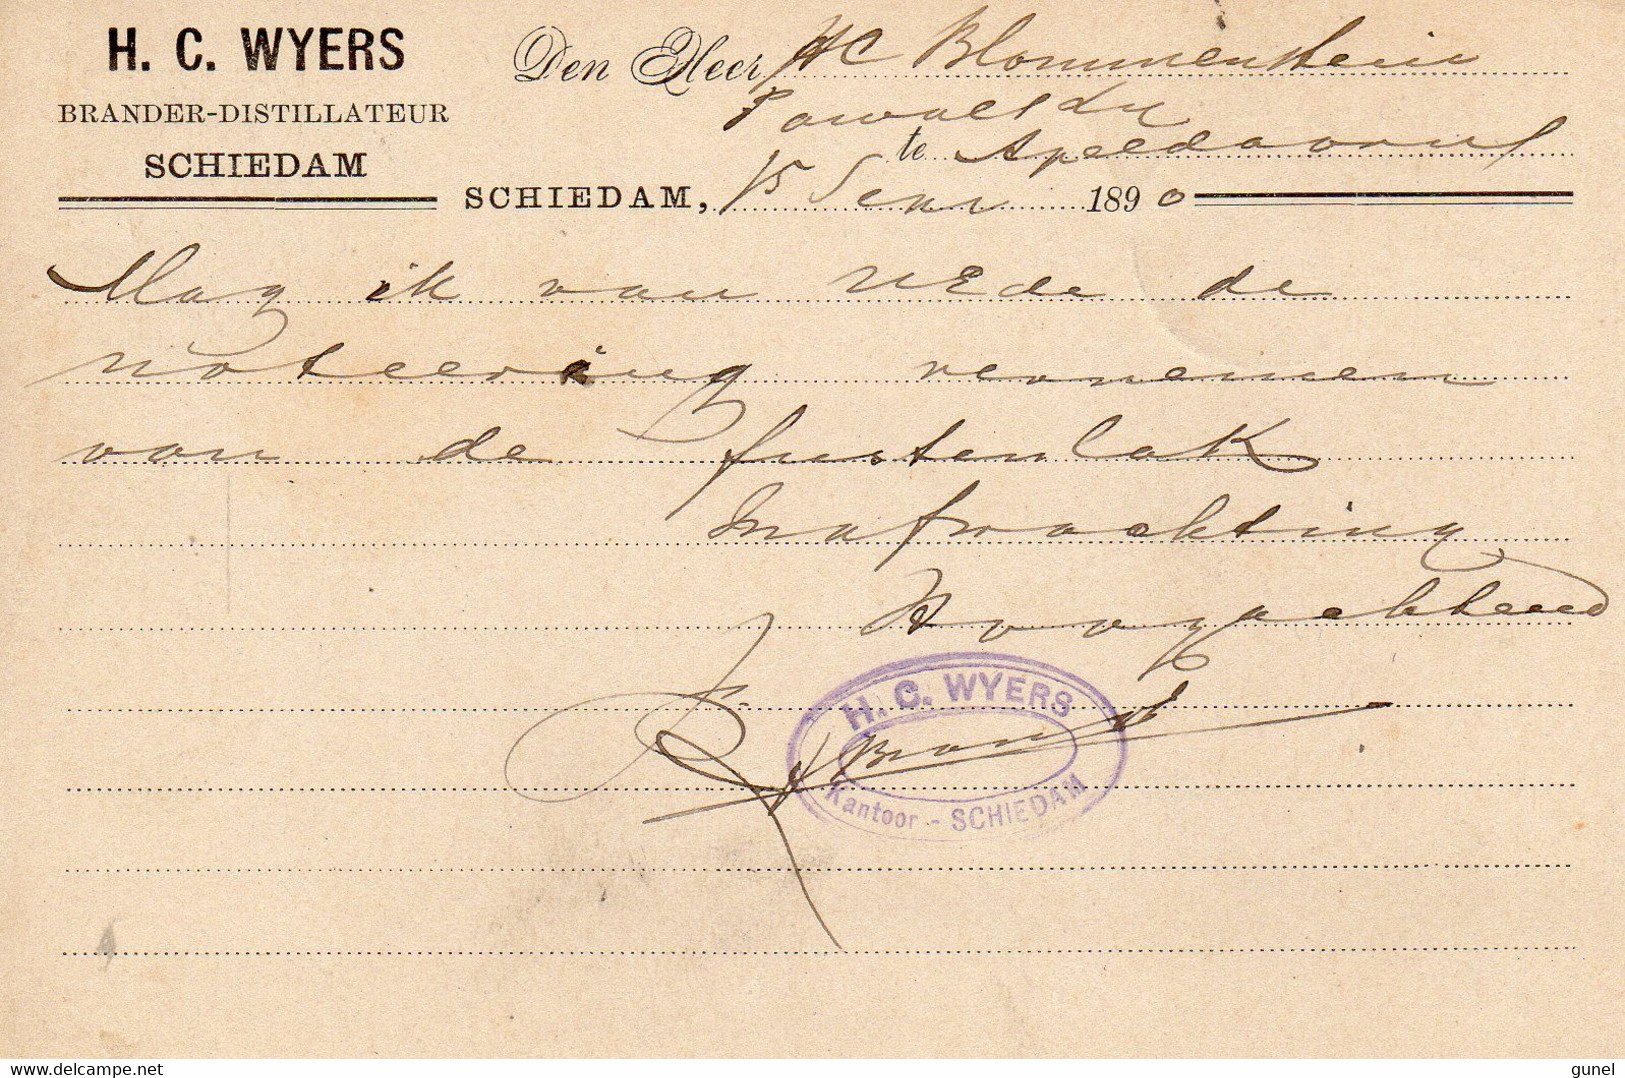 H. C. WYERS
BRANDER-DISTILLATEUR
SCHIEDAM
Den Heer HC Blommenstein
te Apeldoorn
SCHIEDAM, 15 1890
Mag ik van UEde de
noteering vernemen
van de fustenlak
Inafwachting
Hoogachtend
H. C. WYERS
Kantoor - SCHIEDAM
delcampe.net
gunel